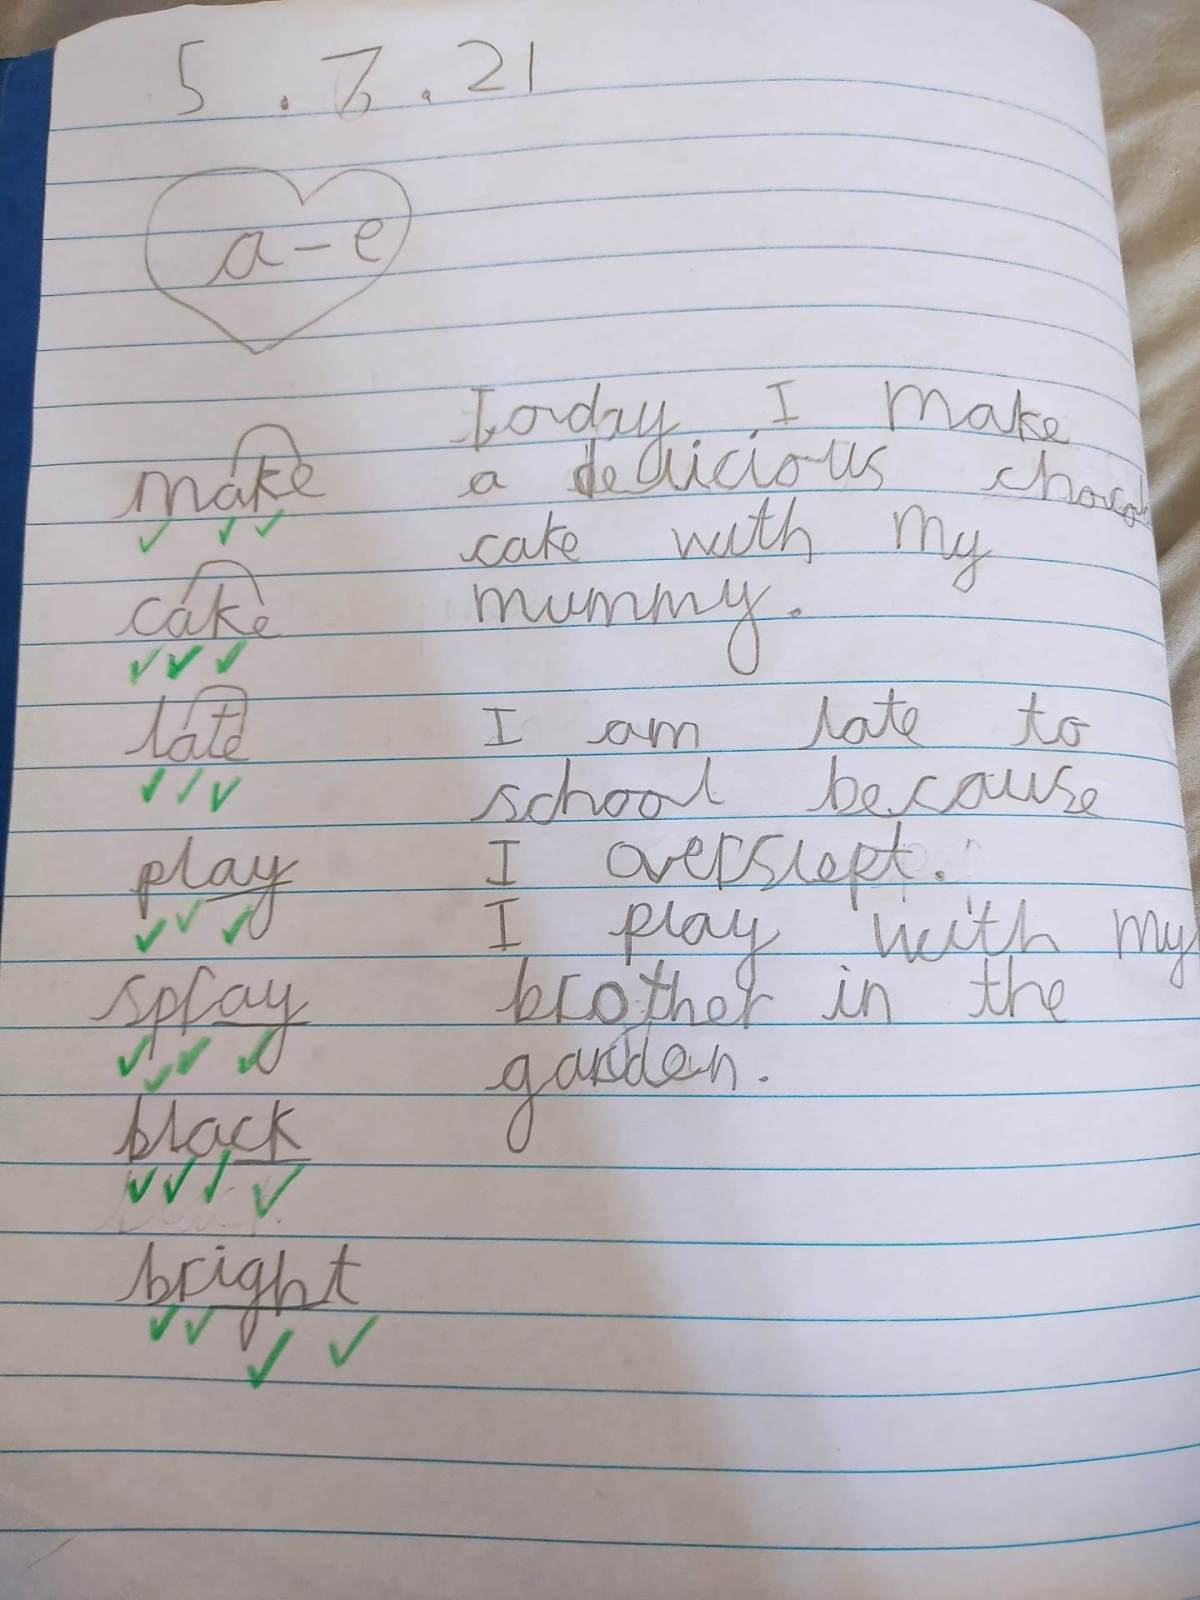 5.7.21
a-e
make
cake
late
play
spray
black
bright
Today I make
a delicious
cake with my
mummy.
I am late to
school because
I overslept.
I play with my
brother in the
garden.